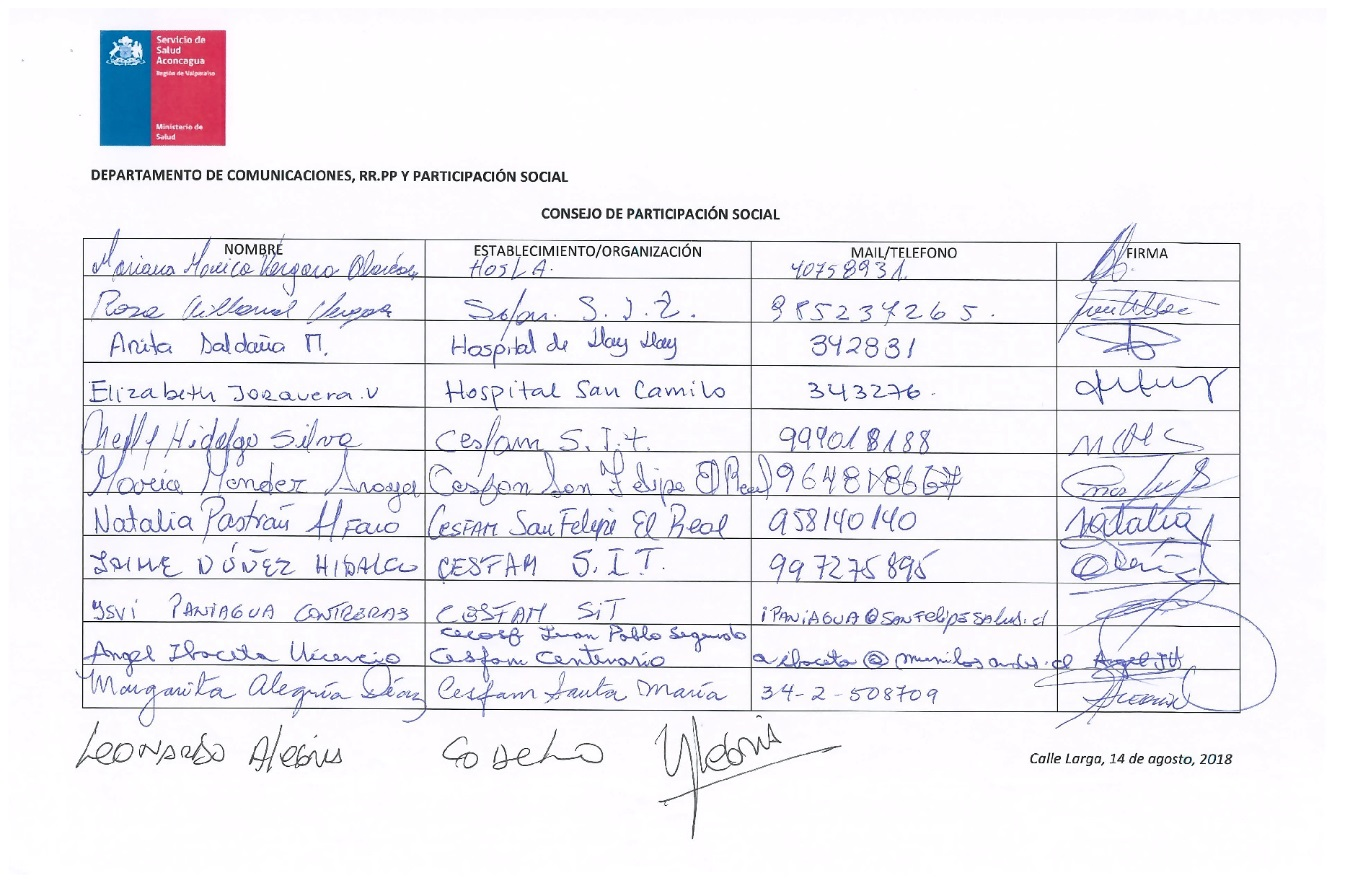 Servicio de
Salud
Aconcagua
Región de Valparaíso
Ministerio de
Salud
DEPARTAMENTO DE COMUNICACIONES, RR.PP Y PARTICIPACIÓN SOCIAL
CONSEJO DE PARTICIPACIÓN SOCIAL
NOMBRE ESTABLECIMIENTO/ORGANIZACIÓN MAIL/TELEFONO FIRMA
Mariana Monica Vergara HOSLA. 40758931.
Rosa Villarroel Vergara S.J.2. 985234265.
Anita Saldaña M. Hospital de Llay Llay 342831
Elizabeth Jorquera.V Hospital San Camilo 343276.
Nelly Hidalgo Silva Cesfam S.I.t. 999018188
María Mendez Araya Cesfam San Felipe El Real
Natalia Pastrán Alfaro CESFAM San Felipe El Real 958140140 Natalia
JAIME NÚÑEZ HIDALGO CESFAM S.I.T. 997275895
YSVI PANIAGUA CONTRERAS COSFAM SIT iPANiAGUA@SANFelipeSalud.cl
Cecosf Juan Pablo Segundo
Angel Ibaceta Vicencio Cesfam Centenario aibaceta@munilosandes.cl
Margarita Alegría Díaz Cesfam Santa María 34-2-508709
LEONARDO Alegris
Calle Larga, 14 de agosto, 2018